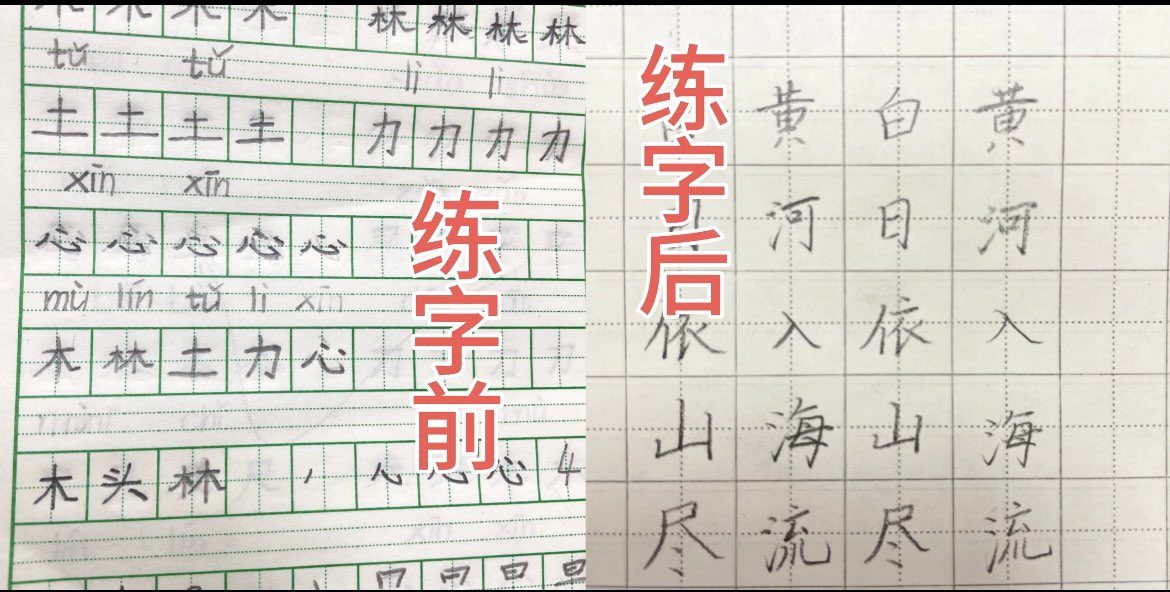 木 木 木 木 林 林 林 林
tǔ tǔ li li
土 土 土 土 力 力 力 力
xīn xīn
心 心 心 心 心
mù lín tǔ li xīn
木 林 土 力 心
木 头 林 心 心 心 4
练字前
练字后
黄 白 黄
日 河 日 河
依 入 依 入
山 海 山 海
尽 流 尽 流